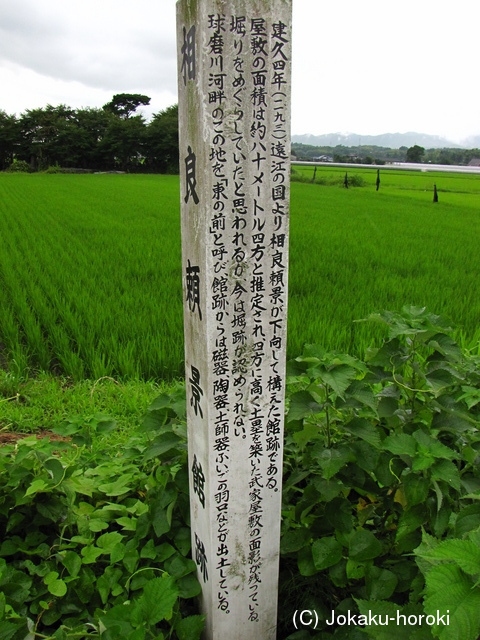 相良頼景館跡
建久四年(一一九三)遠江の国より相良頼景が下向して構えた館跡である。
屋敷の面積は約八十メートル四方と推定され四方に高く土塁を築いた武家屋敷の面影が残っている。
堀りをめぐらしていたと思われるが今は堀跡が認められない。
球磨川河畔のこの地を「東の前」と呼び、館跡からは磁器、陶器、土師器、ふいごの羽口などが出土している。
(C) Jokaku-horoki